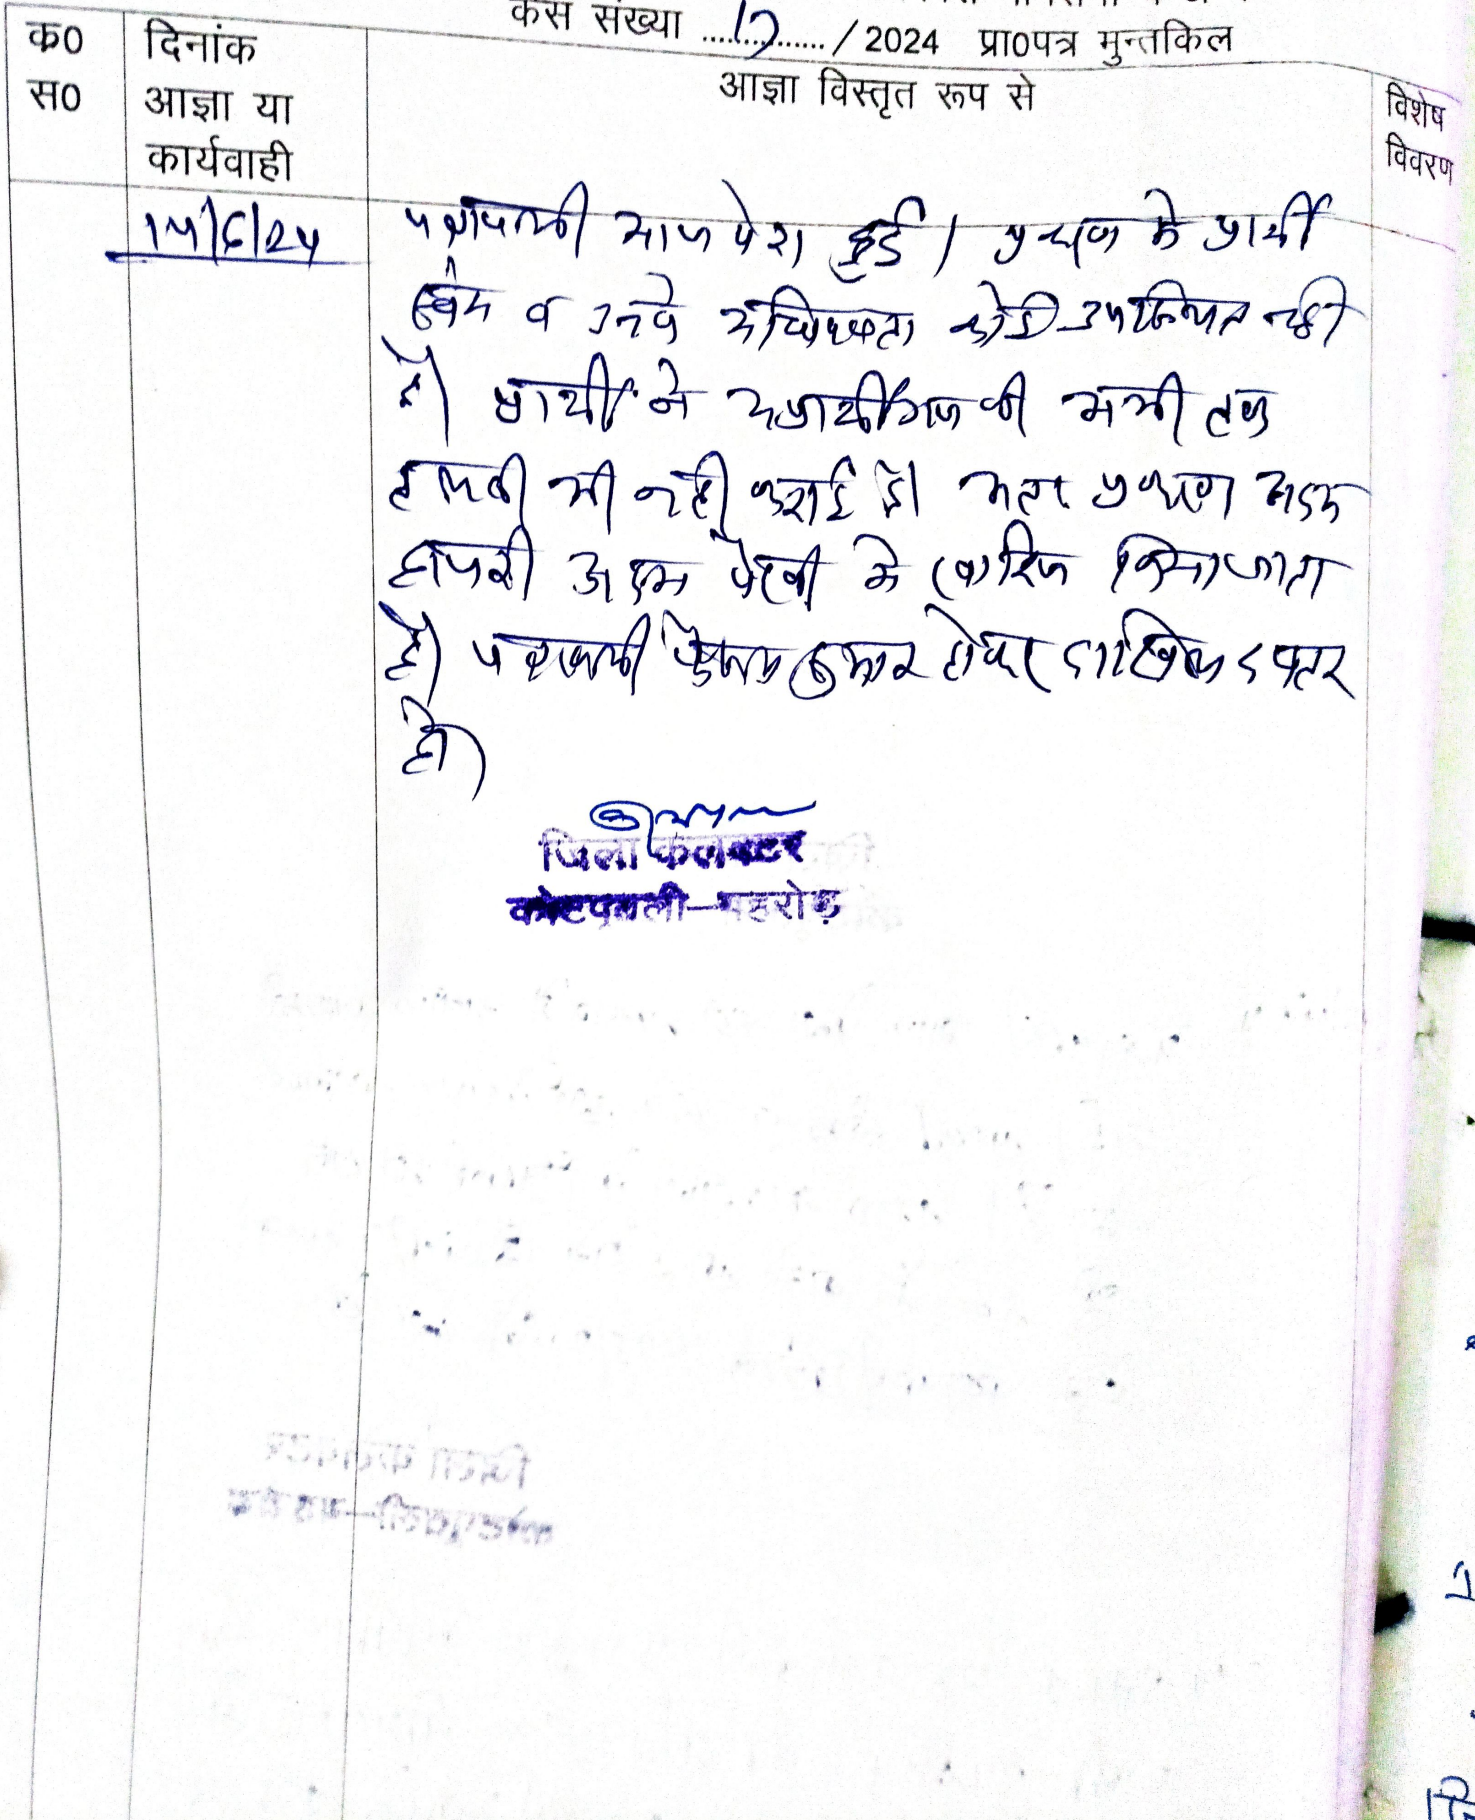 केस संख्या 17 / 2024 प्रा0पत्र मुन्तकिल
क0 स0
दिनांक
आज्ञा या
कार्यवाही
आज्ञा विस्तृत रूप से
विशेष
विवरण
14/6/24
पत्रावली आज पेश हुई। प्रकरण के प्रार्थी
स्वंय व उनके अधिवक्ता कोई उपस्थित नही
है। प्रार्थी ने अप्रार्थीगण की अभी तक
तलबी भी नही कराई है। अतः प्रकरण अदम
हाजरी अदम पैरवी मे खारिज किया जाता
है। पत्रावली फैसल शुमार होकर दाखिल दफ्तर
हो।
जिला कलक्टर
कोटपूतली–बहरोड़